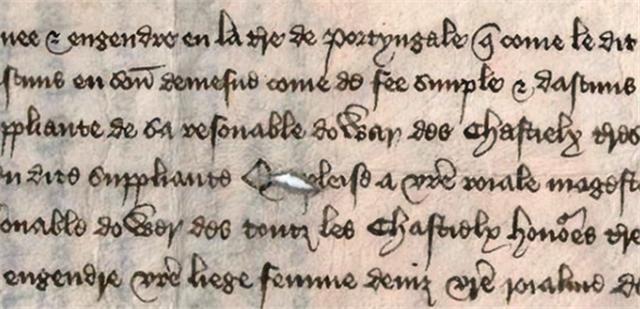 nee & engendre en la tře de Portyngale q̃ come le dit
stauns en son demesne come de fee simple & dastauns
ppliante de sa resonable dower des Chastielx tres
dite suppliante pleise a vr̃e roiale mageste
onable dower des toutz les Chastielx honõrs tre
engendre vr̃e liege femme deinz vr̃e roialme de